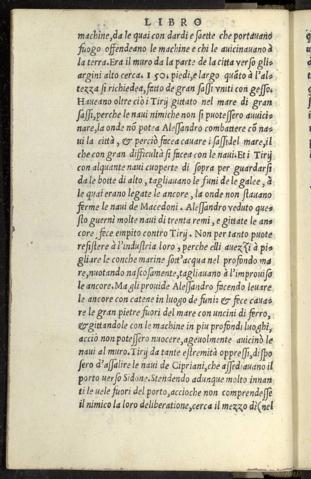 LIBRO
machine, da le quai con dardi e saette che portauano
fuogo offendeano le machine e chi le auicinauano à
la terra. Era il muro da la parte de la citta verso gli
argini alto cerca. 150. piedi, e largo quãto à l'al-
tezza si richiedea, fatto de gran sassi vniti con gesso.
Haueano oltre ciò i Tirij gittato nel mare di gran
sassi, perche le naui nimiche non si puotessero auuici-
nare, la onde nõ potea Alessandro combattere cõ na-
ui la città, & perciò fecea cauare i sassi del mare, il
che con gran difficultà si facea con le naui. Et i Tirij
con alquante naui cuoperte di sopra per guardarsi
da le botte di alto, tagliauano le funi de le galee, à
le quai erano legate le ancore, la onde non stauano
ferme le naui de Macedoni. Alessandro veduto que-
sto guernì molte naui di trenta remi, e gittate le an-
core, fece empito contro Tirij. Non per tanto puote
resistere à l'industria loro, perche essi auezzi à pi-
gliare le conche marine sott'acqua nel profondo ma
re, nuotando nascosamente, tagliauano à l'improuiso
le ancore. Ma gli prouide Alessandro facendo leuare
le ancore con catene in luogo de funi: & fece caua-
re le gran pietre fuori del mare con uncini di ferro,
& gittandole con le machine in piu profondi luoghi,
acciò non potessero nuocere, ageuolmente auicinò le
naui al muro. Tirij da tante estremità oppressi, dispo
sero d'assalire le naui de Cipriani, che assediauano il
porto uerso Sidone. Stendendo adunque molto innan
ti le uele fuori del porto, accioche non comprendesse
il nimico la loro deliberatione, cerca il mezzo dì (nel